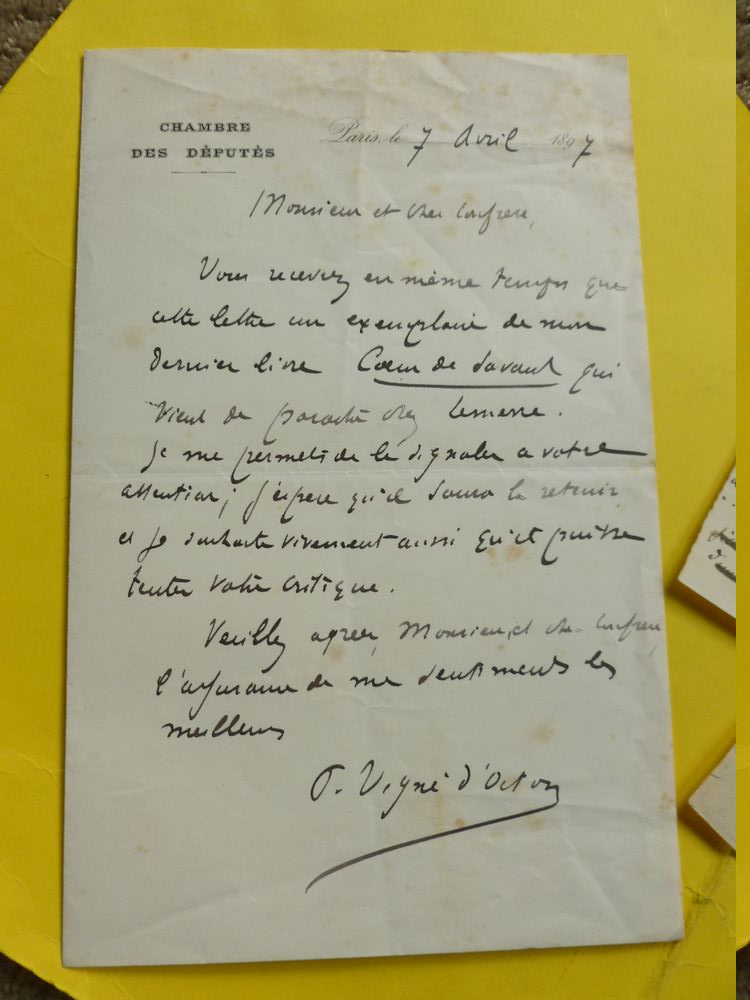 CHAMBRE
DES DÉPUTÉS
Paris, le 7 Avril 1897
Monsieur et cher Confrère,
Vous recevrez en même temps que
cette lettre un exemplaire de mon
dernier livre Cœur de Savant qui
vient de paraître chez Lemerre.
Je me permets de le signaler à votre
attention ; j'espère qu'il saura la retenir
et je souhaite vivement aussi qu'il puisse
tenter votre critique.
Veuillez agréer, Monsieur et cher Confrère,
l'assurance de mes sentiments les
meilleurs
P. Vigné d'Octon